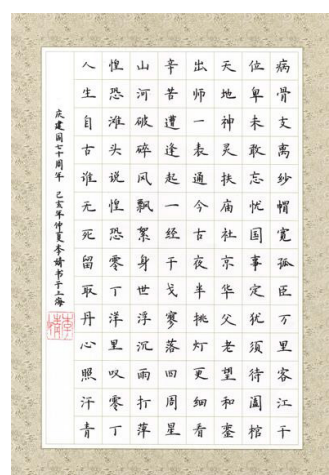 病骨支离纱帽宽孤臣万里客江干
位卑未敢忘忧国事定犹须待阖棺
天地神灵扶庙社京华父老望和銮
出师一表通今古夜半挑灯更细看
辛苦遭逢起一经干戈寥落四周星
山河破碎风飘絮身世浮沉雨打萍
惶恐滩头说惶恐零丁洋里叹零丁
人生自古谁无死留取丹心照汗青
庆建国七十周年 己亥年仲夏李婧书于上海